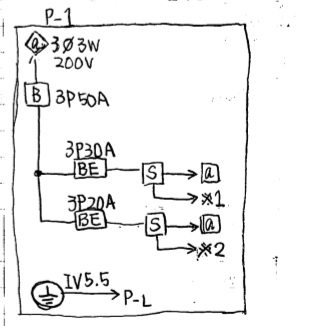 P-1
a 3Ø3W
200V
B 3P50A
3P30A
BE S a
※1
3P20A
BE S a
※2
IV5.5
P-L